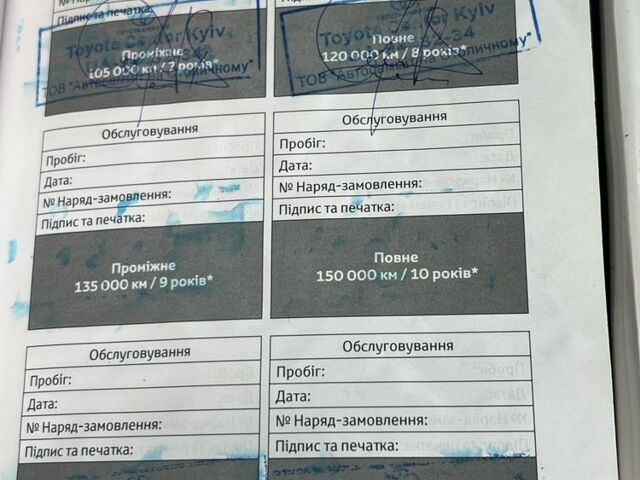 № Наряд-замовлення:
Підпис та печатка:
Підпис та печатка:
Toyota Center Kyiv
Проміжне
105 000 км / 7 років*
ТОВ "Автосаміт на Столичному"
Toyota Center Kyiv
Повне
120 000 км / 8 років*
ТОВ "Автосаміт на Столичному"
Обслуговування
Пробіг:
Дата:
№ Наряд-замовлення:
Підпис та печатка:
Проміжне
135 000 км / 9 років*
Обслуговування
Пробіг:
Дата:
№ Наряд-замовлення:
Підпис та печатка:
Повне
150 000 км / 10 років*
Обслуговування
Пробіг:
Дата:
№ Наряд-замовлення:
Підпис та печатка:
Обслуговування
Пробіг:
Дата:
№ Наряд-замовлення:
Підпис та печатка: